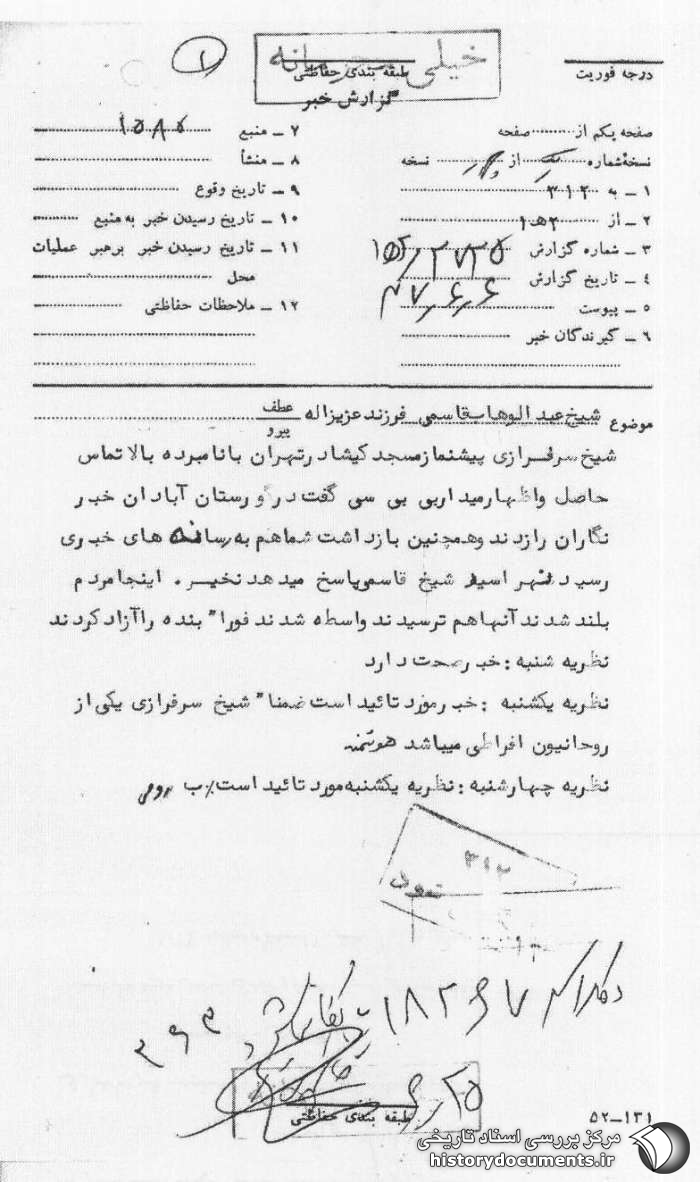 ۱
خیلی محرمانه
درجه فوریت
طبقه بندی حفاظتی
گزارش خبر
صفحه یکم از صفحه
نسخه شماره یک از نسخه
۱ ــ به ۳۱۲
۲ ــ از ۱ ه‍ ۲
۳ ــ شماره گزارش
۴ ــ تاریخ گزارش ۴۷٫۶٫۶
۵ ــ پیوست
۶ ــ گیرندگان خبر
۷ ــ منبع ۱۵۸۵
۸ ــ منشأ
۹ ــ تاریخ وقوع
۱۰ ــ تاریخ رسیدن خبر به منبع
۱۱ ــ تاریخ رسیدن خبر برهبر عملیات
محل
۱۲ ــ ملاحظات حفاظتی
موضوع شیخ عبدالوهاب قاسمی فرزند عزیزاله
عطف
پیرو
شیخ سرفرازی پیشنماز مسجد کیشا درتهران با نامبرده بالا تماس
حاصل و اظهار میدارد بی بی سی گفت در گورستان آبادان خبر
نگاران را زدند وهمچنین بازداشت شما هم به رسانه های خبری
رسید شیخ قاسمی پاسخ میدهد نخیر. اینجا مردم
بلند شدند آنها هم ترسیدند واسطه شدند فورا" بنده را آزاد کردند
نظریه شنبه : خبر صحت دارد
نظریه یکشنبه : خبر مورد تائید است ضمنا" شیخ سرفرازی یکی از
روحانیون افراطی میباشد
نظریه چهارشنبه : نظریه یکشنبه مورد تائید است٪ ب
۳۱۲
۱۸۲۶۷
۳۶۳
طبقه بندی حفاظتی
۵۲ــ۱۳۱
مرکز بررسی اسناد تاریخی
historydocuments.ir